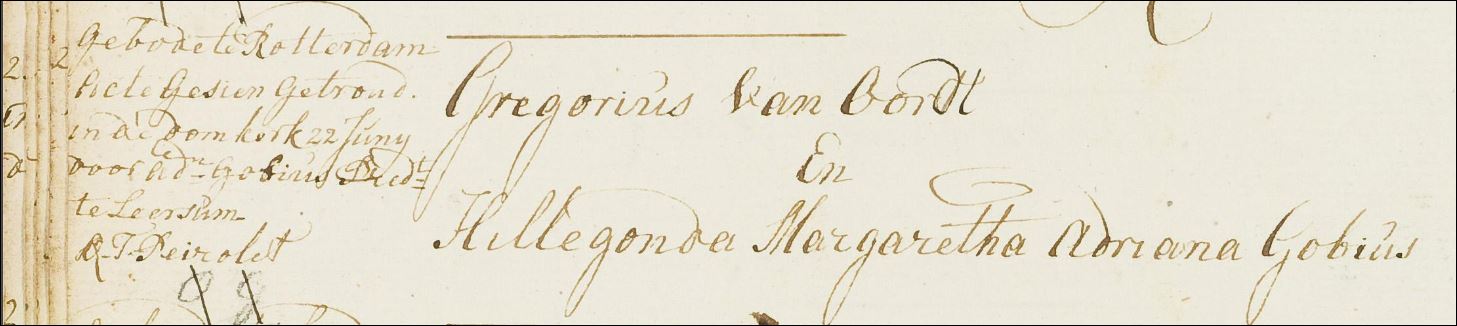 Gebode te Rotterdam
Acte Gesien Getroud.
in de Domkerk 22 Juny
door Adn Gobius Predt
te Leersum
Gregorius van Oordt
En
Hillegonda Margaretha Adriana Gobius